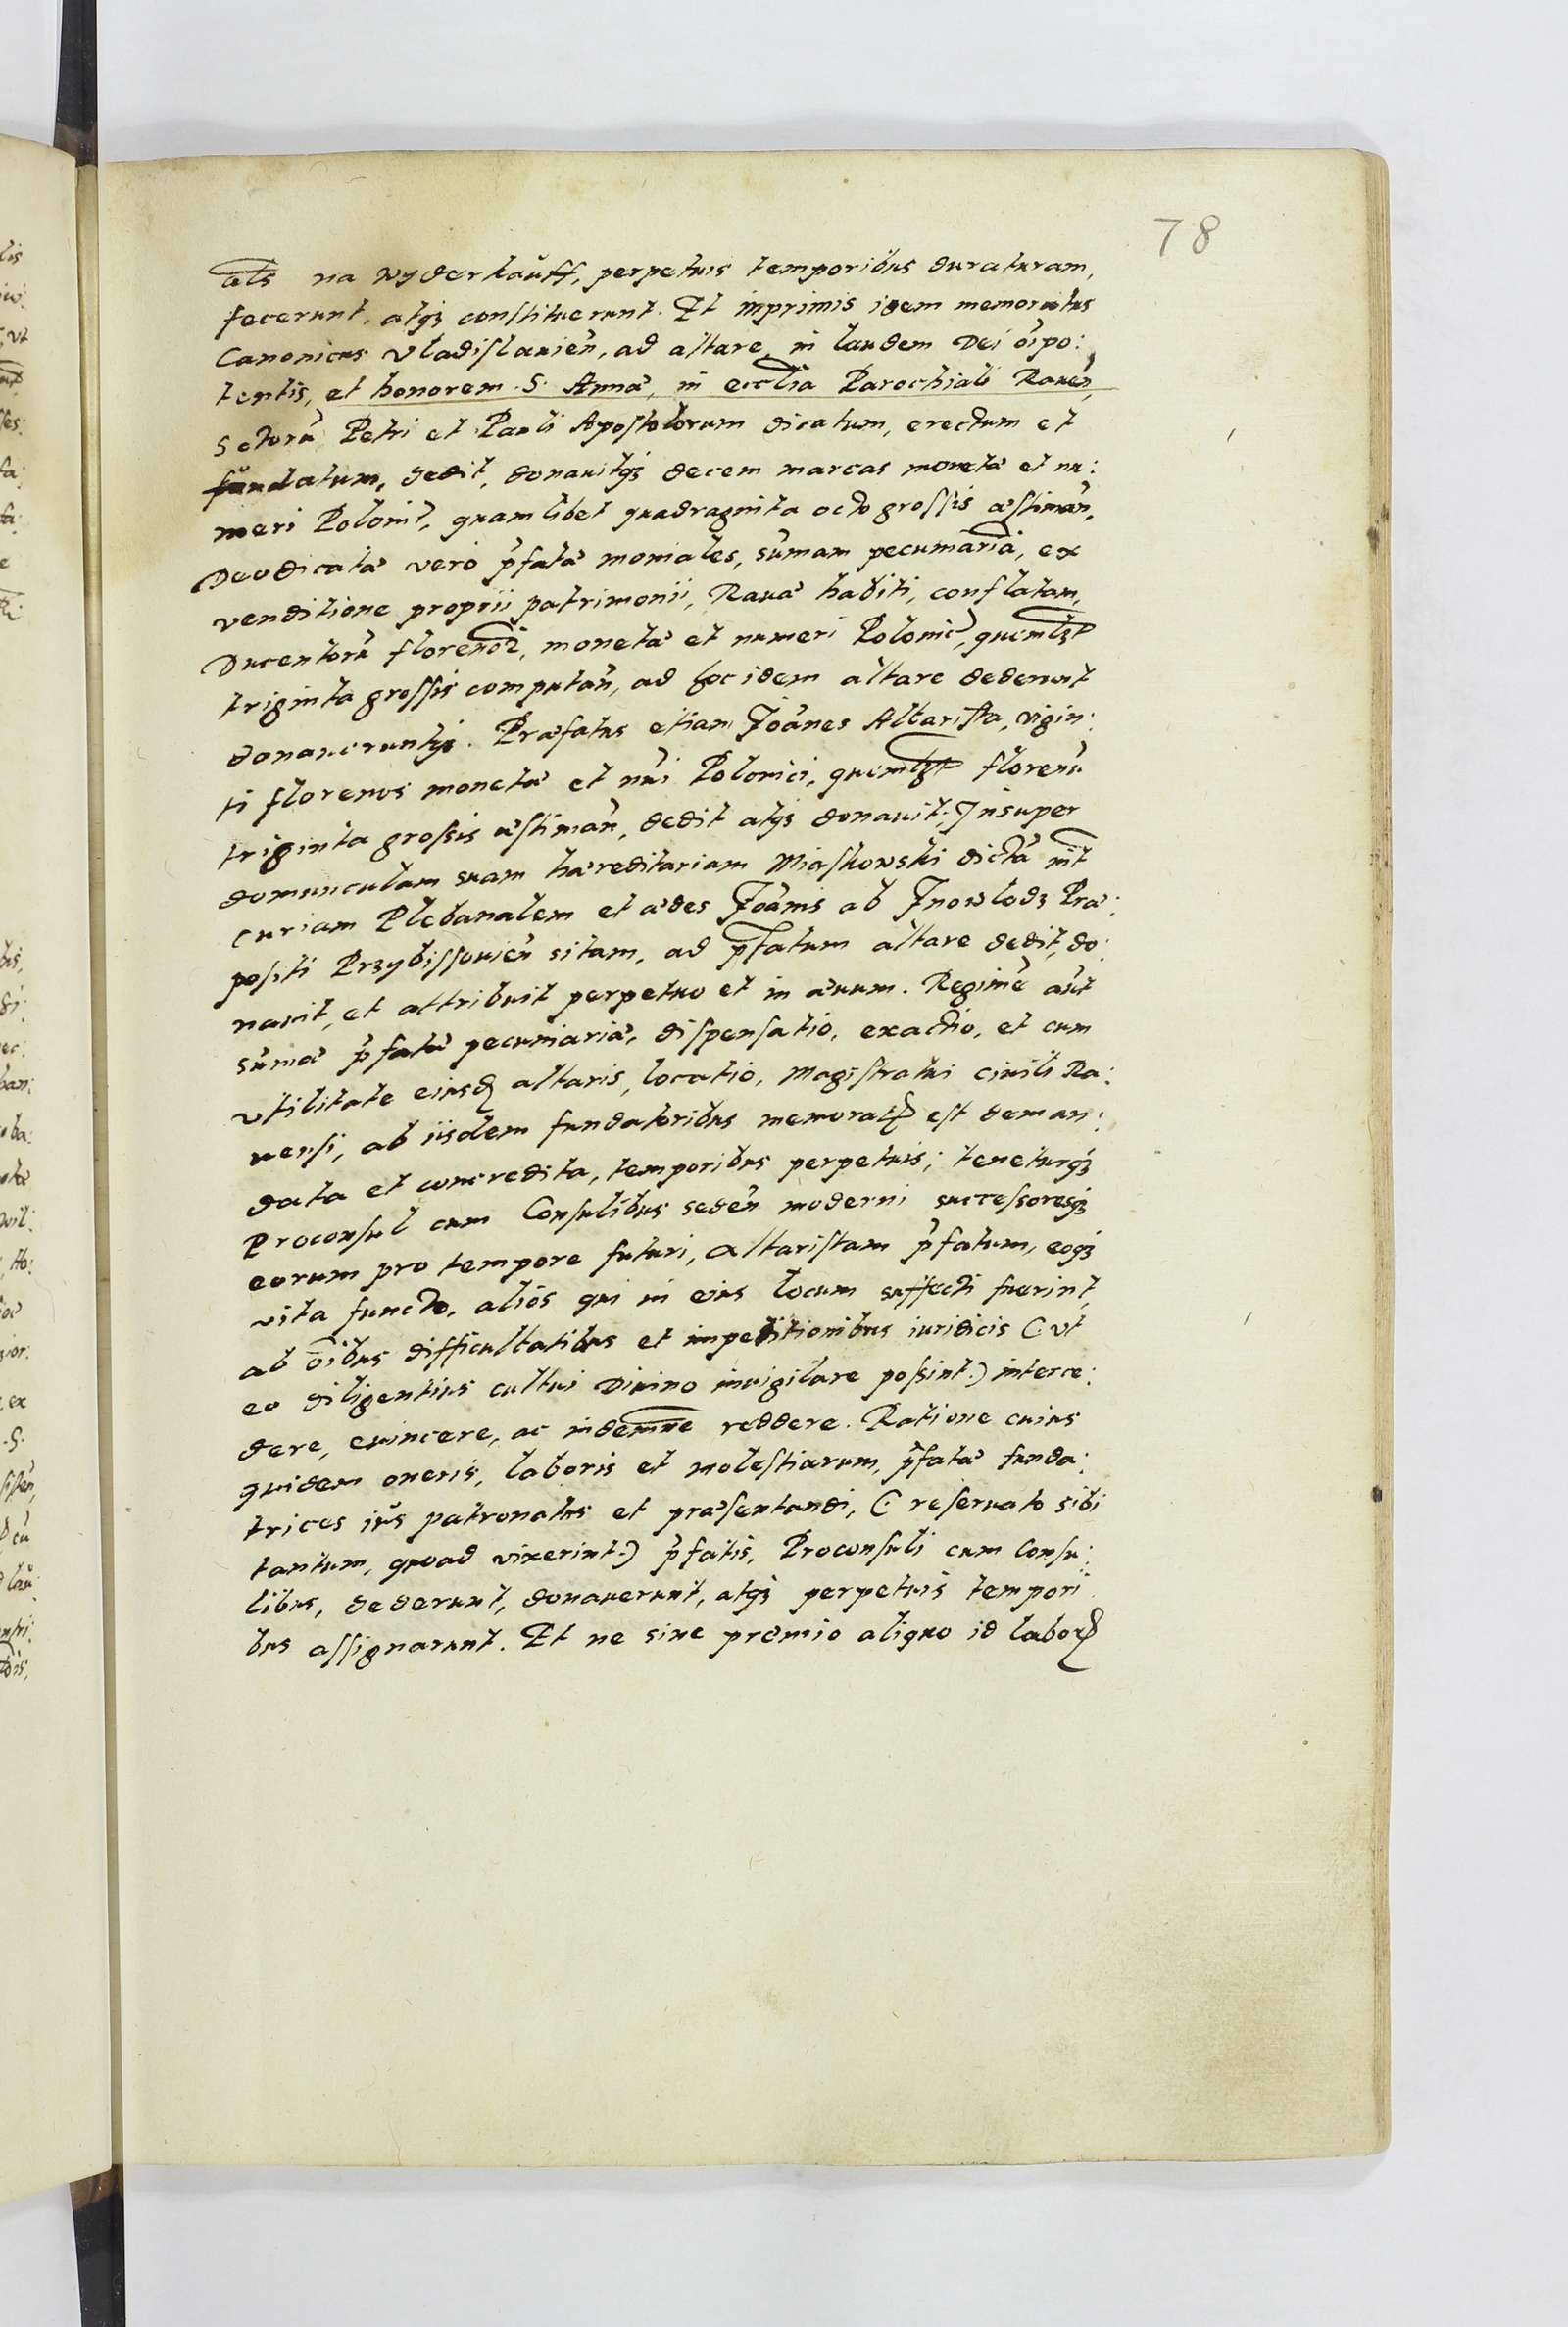 78
als na wyderkauff, perpetuis temporibus duraturam,
fecerunt, atqꝫ constituerunt. Et inprimis idem memoratus
Canonicus Vladislauien̄, ad altare, in laudem Dei oīpo:
tentis, et honorem S. Annæ, in eccl̄ia Parochiali Rauen̄,
Sctorū Petri et Pauli Apostolorum dicatum, erectum et
fundatum, dedit, donauitqꝫ decem marcas monetæ et nu:
meri Polonic, quamlibet quadraginta octo grossis æstiman̄,
Deodicatæ vero p̄fatæ moniales, sum̄am pecuniariā, ex
venditione proprii patrimonii, Rauæ habiti, conflatam,
Ducentorū florenoꝝ, monetæ et numeri Polonic, quemlꝫt
triginta grossis computan̄, ad hoc idem altare dederunt
donaueruntqꝫ. Præfatus etiam Joānes Altarista, vigin:
ti florenos monetæ et nr̄i Polonici, quemlꝫt florenū
triginta grossis æstiman̄, dedit atqꝫ donauit: Insuper
domunculam suam hæreditariam Miaskowski dictā int̄
curiam Plebanalem et ædes Joānis ab Inowlodz Præ:
positi Przybissouien̄ sitam, ad p̄fatum altare dedit, do:
nauit, et attribuit perpetuo et in æuum. Regimē aūt
sum̄æ p̄fatæ pecuniariæ, dispensatio, exactio, et cum
vtilitate eiusđ altaris, locatio, Magistratui ciuili Ra:
uensi, ab iisdem fundatoribus memoratꝭ est deman:
data et concredita, temporibus perpetuis; teneturqꝫ
Proconsul cum Consulibus seden̄ moderni successoresqꝫ
eorum pro tempore futuri, altaristam p̄fatum, eoqꝫ
vita functo, alios qui in eius locum suffecti fuerint,
ab oībus difficultatibus et impeditionibus iuridicis (: vt
eo diligentius cultui Diuino inuigilare possint:) interce:
dere, euincere, ac indemne reddere. Ratione cuius
quidem oneris, laboris et molestiarum, p̄fatæ funda:
trices ius patronatus et præsentandi, (: reseruato sibi
tantum, quoad vixerint:) p̄fatis, Proconsuli cum Consu:
libus, dederunt, donauerunt, atqꝫ perpetuis tempori
bus assignarunt. Et ne sine premio aliquo id laborꝭ